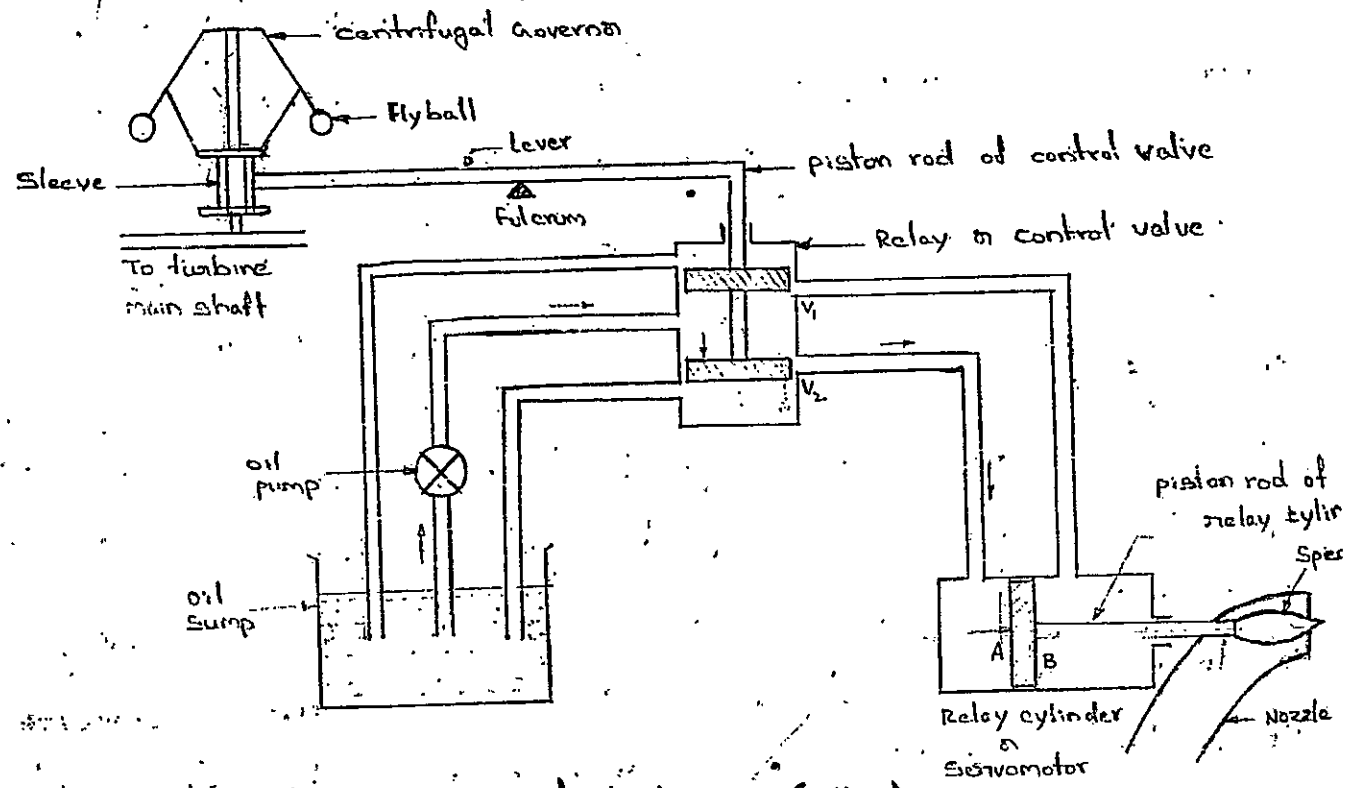 centrifugal Governor
Flyball
Lever
piston rod of control valve
Sleeve
Fulcrum
Relay or control valve
To turbine
main shaft
V1
V2
oil
pump
piston rod of
relay
oil
sump
A
B
Relay cylinder
or
Servomotor
Nozzle